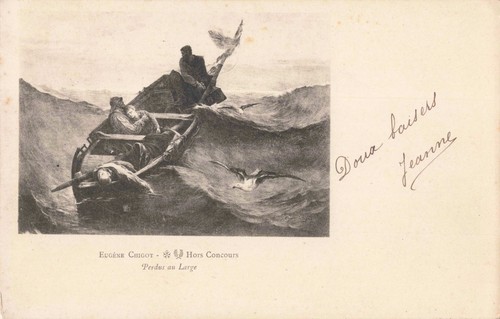 EUGÈNE CHIGOT - HORS CONCOURS
Perdus au Large
Doux baisers
Jeanne